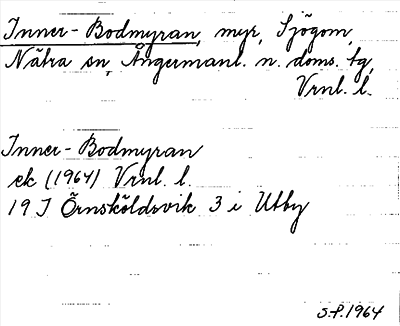 Inner-Bodmyran, myr, Sjögom,
Nätra sn, Ångermanl. n. doms. tg,
Vrnl. l.
Inner-Bodmyran
ek (1964) Vrnl. l.
19 J Örnsköldsvik 3 i Utby
S.P. 1964